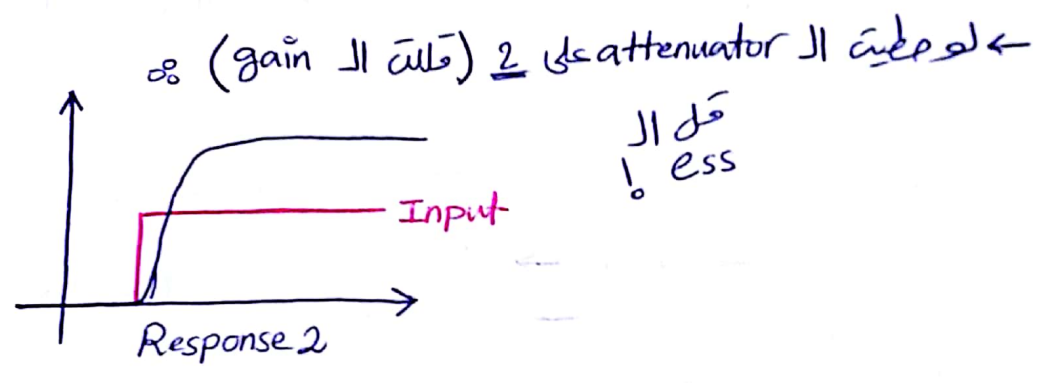 ← لو حطيت ال attenuator على 2 (قللت ال gain) :
قل ال
ess !
Input
Response 2